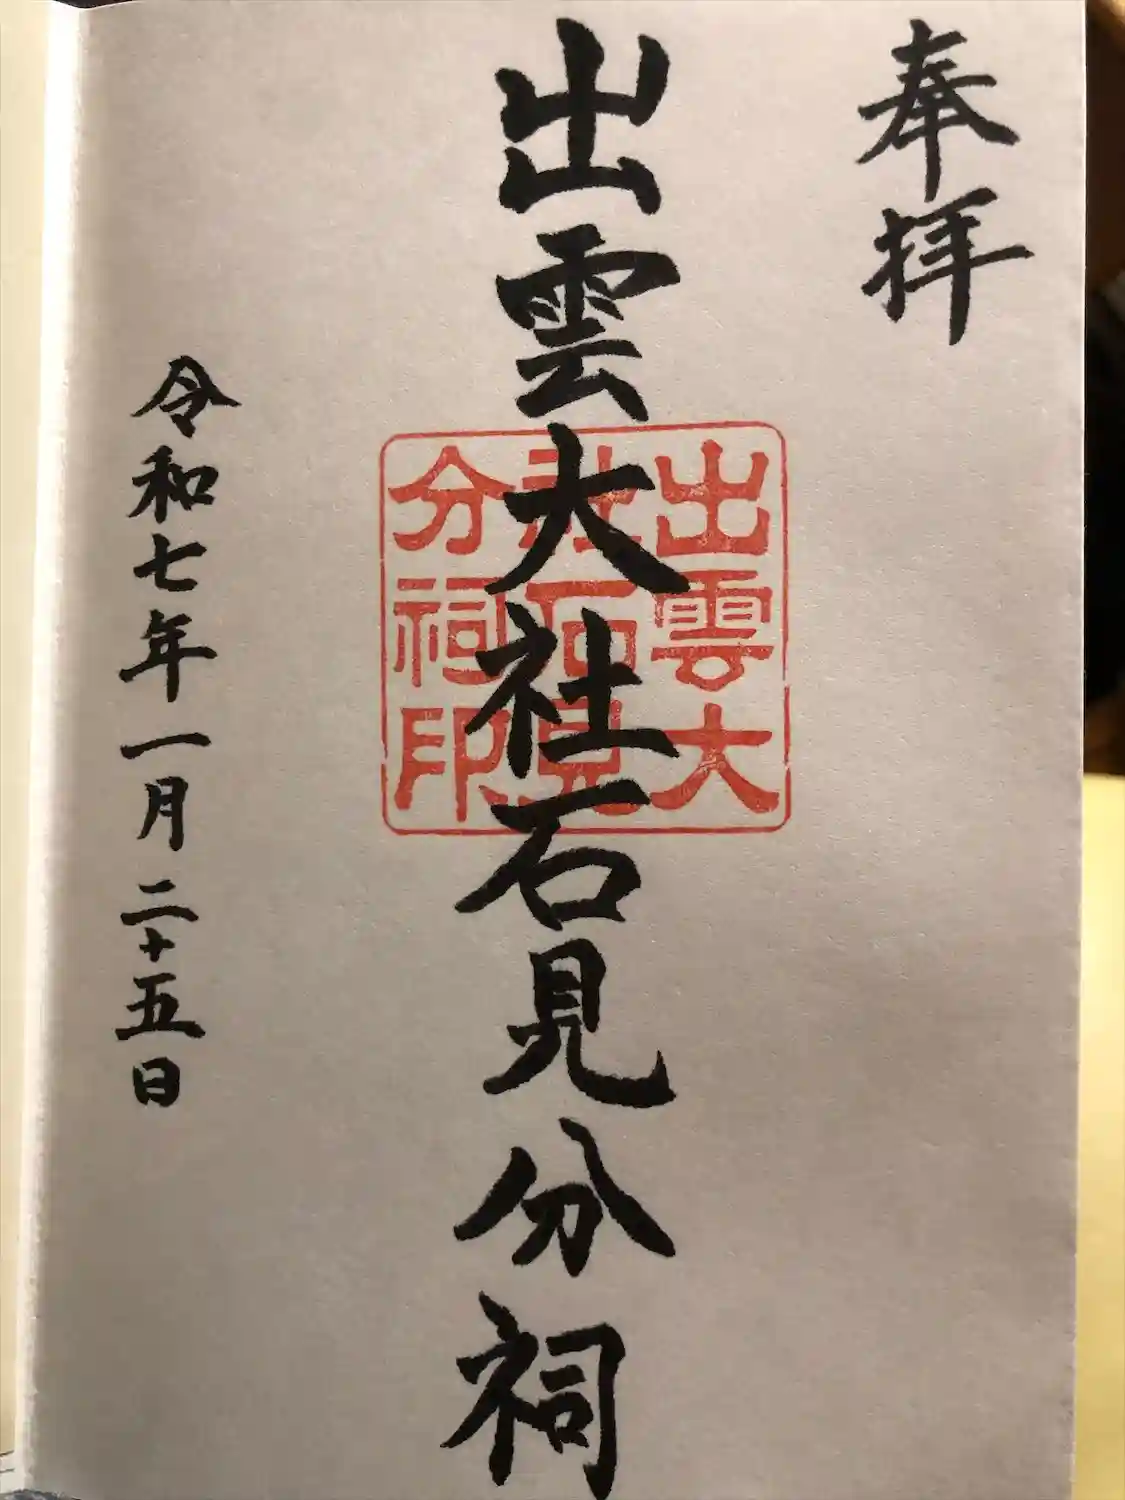 奉拝
出雲大社石見分祠
出雲大
社石見
分祠印
令和七年一月二十五日